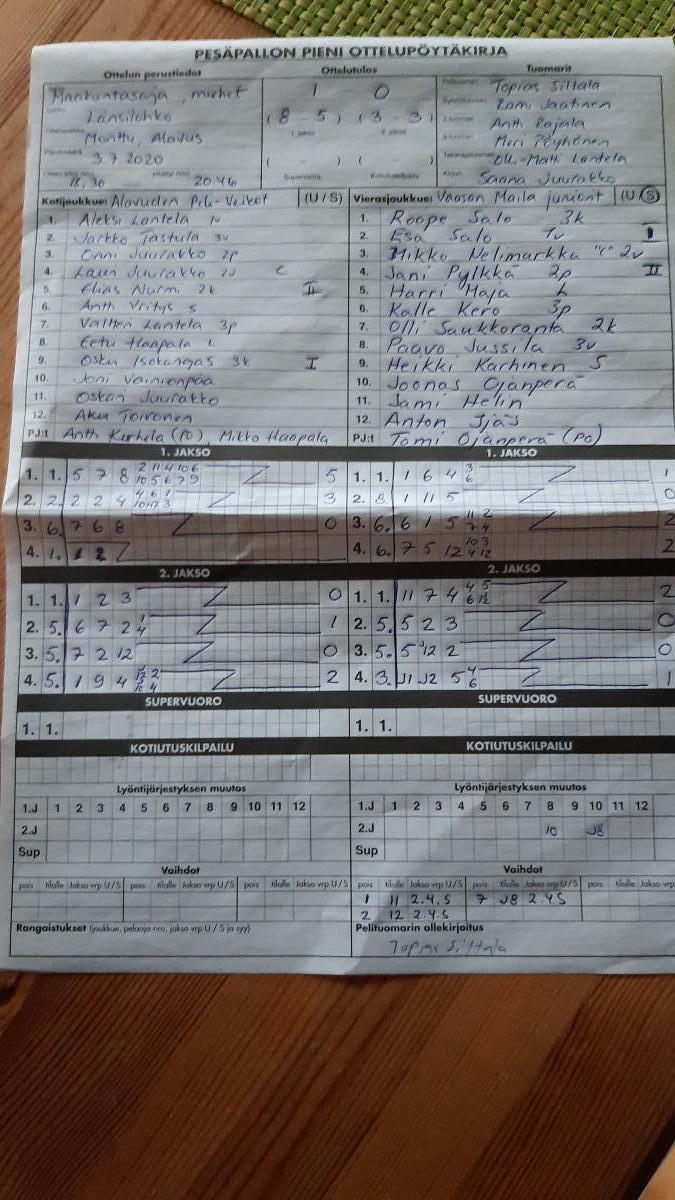 PESÄPALLON PIENI OTTELUPÖYTÄKIRJA
Ottelun perustiedot
Ottelutulos
Tuomarit
Maakuntasarja, miehet
1 0
Topias Siltala
Länsilohko
(8 - 5) (3 - 3)
Rami Jaatinen
Monttu, Alavus
Antti Rajala
3.7.2020
Meri Pöyhönen
Olli-Matti Lantela
18.30 20.46
( - ) ( )
Saana Juurakko
Kotijoukkue: Alavuden Peli-Veikot (U / S)
Vierasjoukkue: Vaasan Maila juniorit (U / S)
1. Aleksi Lantela 1v
1. Roope Salo 3k
2. Jarkko Tastula 3v
2. Esa Salo 1v I
3. Onni Juurakko 2p
3. Mikko Nelimarkka "c" 2v
4. Lauri Juurakko 2v C
4. Jani Pylkkä 2p II
5. Elias Nurmi 2k II
5. Harri Maja L
6. Antti Yritys S
6. Kalle Kero 3p
7. Valtteri Lantela 3p
7. Olli Saukkoranta 2k
8. Eetu Haapala L
8. Paavo Jussila 3v
9. Osku Isokangas 3k I
9. Heikki Karhinen S
10. Joni Vainionpää
10. Joonas Ojanperä
11. Oskari Juurakko
11. Sami Helin
12. Aku Toivonen
12. Anton
PJ:t Antti Kerhela (PO), Mikko Haapala
PJ:t Tomi Ojanperä (PO)
1. JAKSO
1. JAKSO
1. 1. 5 7 8 5
1. 1. 1 6 4 3 6 1
2. 2. 2 2 4 3
2. 8. 1 11 5 0
3. 6. 7 6 8 0
3. 6. 6 1 5 11 2 7 4 2
4. 1.
4. 6. 7 5 12 10 3 4 12 2
2. JAKSO
2. JAKSO
1. 1. 1 2 3 0
1. 1. 11 7 4 4 5 6 12 2
2. 5. 6 7 2 1 4 1
2. 5. 5 2 3 0
3. 5. 7 2 12 0
3. 5. 5 J12 2 0
4. 5. 1 9 4 2
4. 3. J1 J2 5 4 6 1
SUPERVUORO
SUPERVUORO
1. 1.
1. 1.
KOTIUTUSKILPAILU
KOTIUTUSKILPAILU
Lyöntijärjestyksen muutos
Lyöntijärjestyksen muutos
1.J 1 2 3 4 5 6 7 8 9 10 11 12
1.J 1 2 3 4 5 6 7 8 9 10 11 12
2.J
2.J 10 J8
Sup
Sup
Vaihdot
Vaihdot
pois tilalle Jakso vrp U / S pois tilalle Jakso vrp U / S pois tilalle Jakso vrp U / S
pois tilalle Jakso vrp U / S pois tilalle Jakso vrp U / S pois tilalle Jakso vrp
1 11 2.4.S 7 J8 2.4S
2 12 2.4.S
Rangaistukset (joukkue, pelaaja nro, jakso vrp U / S ja syy)
Pelituomarin allekirjoitus
Topias Siltala